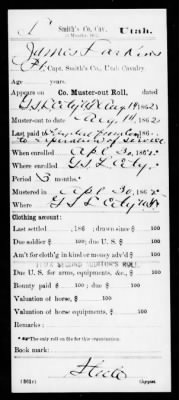 Smith's Co, Cav., Utah.
James Larkins
Pt, Capt. Smith's Co., Utah Cavalry.
Age years.
Appears on Co. Muster-out Roll,
G. S. L. City U.T. Aug 14, 1862
Muster-out to date Aug 14, 1862
Last paid to , 186 .
to expiration of service
When enrolled Apl 30, 1862
Where enrolled G. S. L. City
Period 3 months.
Mustered in Apl 30, 1862
Where G. S. L. City
Clothing account:
Last settled , 186 ; drawn since $ 100
Due soldier $ 100; due U. S. $ 100
Am't for cloth'g in kind or money adv'd $ 100
Due U. S. for arms, equipments, &c., $ 100
Bounty paid $ 100; due $ 100
Valuation of horse, $ 100
Valuation of horse equipments, $ 100
Remarks:
The only roll on file for this organization.
Book mark:
(361c) Copyist.